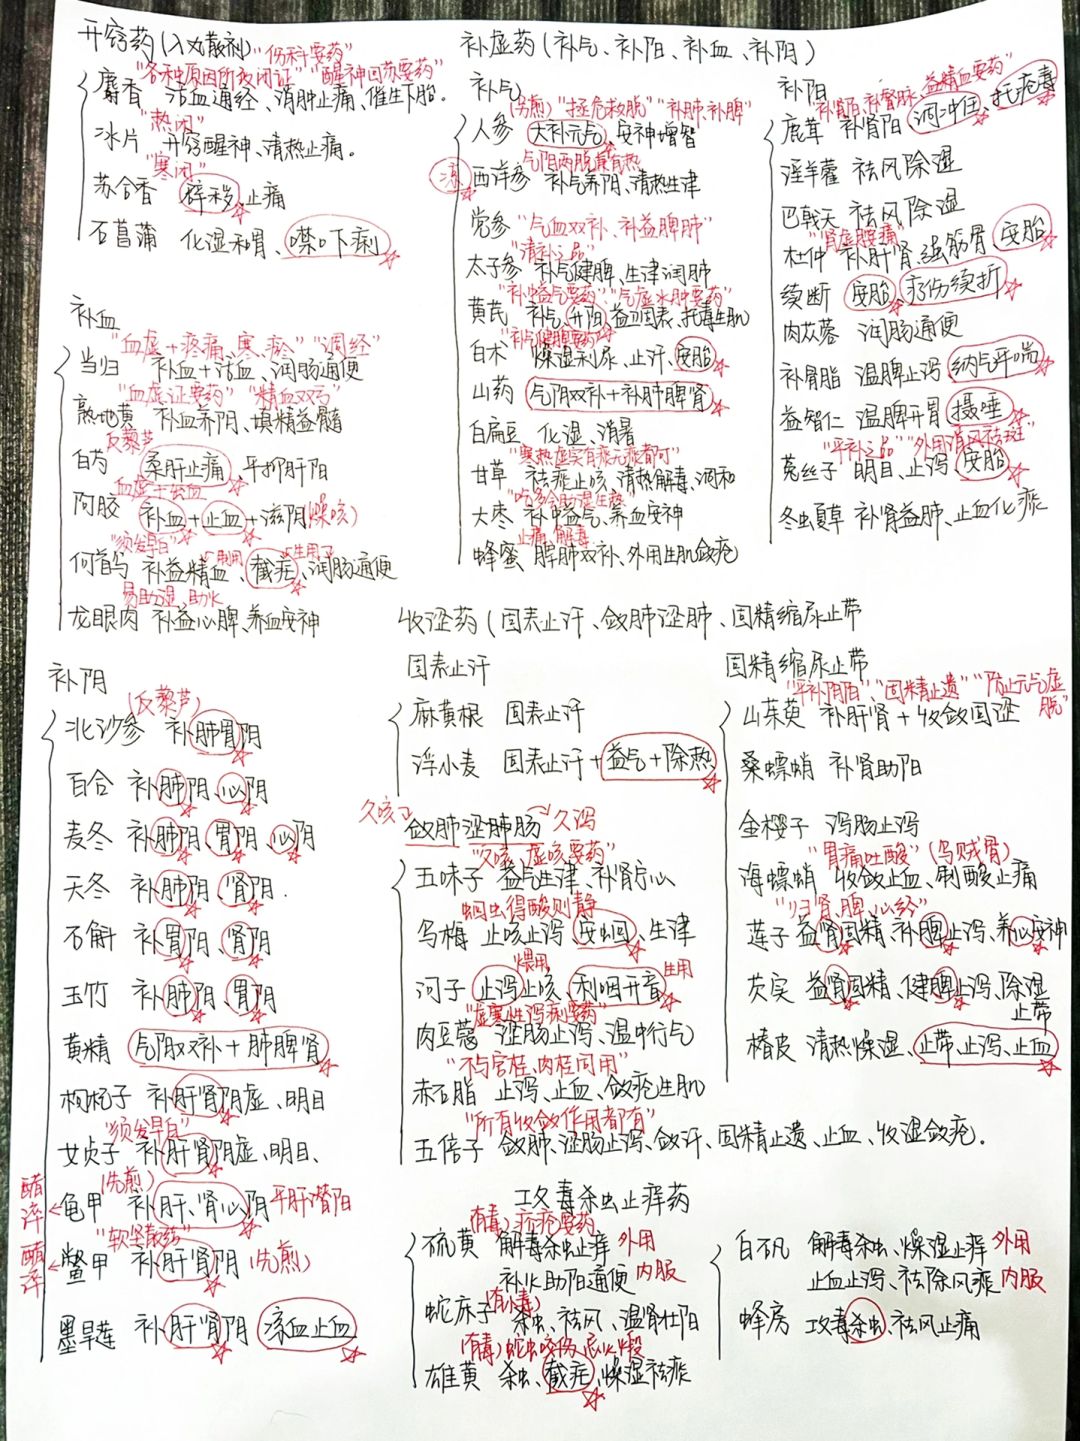 开窍药(入丸散剂)
"伤科要药"
"各种原因所致闭证" "醒神回苏要药"
麝香 活血通经、消肿止痛、催生下胎.
"热闭"
冰片 开窍醒神、清热止痛。
"寒闭"
苏合香 辟秽、止痛
石菖蒲 化湿和胃、噤口下痢
补血
"血虚+疼痛、寒、瘀" "调经"
当归 补血+活血、润肠通便
"血虚证要药" "精血双亏"
熟地黄 补血养阴、填精益髓
反藜芦
白芍 柔肝止痛、平抑肝阳
血虚+出血
阿胶 补血+止血+滋阴(燥咳)
"须发早白" 制用 生用
何首乌 补益精血、截疟、润肠通便
易助湿、助火
龙眼肉 补益心脾、养血安神
补阴
(反藜芦)
北沙参 补肺胃阴
百合 补肺阴、心阴
麦冬 补肺阴、胃阴、心阴
天冬 补肺阴、肾阴.
石斛 补胃阴、肾阴
玉竹 补肺阴、胃阴
黄精 气阴双补+肺脾肾
枸杞子 补肝肾阴虚、明目
"须发早白"
女贞子 补肝肾阴虚、明目、
(先煎)
醋淬←龟甲 补肝、肾心阴 平肝潜阳
"软坚散结"
醋淬←鳖甲 补肝肾阴 (先煎)
墨旱莲 补肝肾阴 凉血止血
补虚药(补气、补阳、补血、补阴)
补气
(另煎) "拯危救脱" "补肺、补脾"
人参 大补元气、安神增智
气阴两脱兼有热
凉 西洋参 补气养阴、清热生津
党参 "气血双补、补益脾肺"
"清补之品"
太子参 补气健脾、生津润肺
"补中益气要药" "气虚水肿要药"
黄芪 补气、升阳、益卫固表、托毒生肌
"补气健脾要药"
白术 燥湿利尿、止汗、安胎
山药 气阴双补+补肺脾肾
白扁豆 化湿、消暑
"寒热虚实有痰无痰都可"
甘草 祛痰止咳、清热解毒、调和
"吃多会助湿生热"
大枣 补中益气、养血安神
止痛、解毒
蜂蜜 脾肺双补、外用生肌敛疮
补阳
"补肾阳、补督脉、益精血要药"
鹿茸 补肾阳、调冲任、托疮毒
淫羊藿 祛风除湿
巴戟天 祛风除湿
"肾虚腰痛"
杜仲 补肝肾、强筋骨、安胎
续断 安胎、疗伤续折
肉苁蓉 润肠通便
补骨脂 温脾止泻 纳气平喘
益智仁 温脾开胃 摄唾
"平补之品" "外用消风祛斑"
菟丝子 明目、止泻、安胎
冬虫夏草 补肾益肺、止血化痰
收涩药(固表止汗、敛肺涩肠、固精缩尿止带
固表止汗
麻黄根 固表止汗
浮小麦 固表止汗+益气+除热
久咳 敛肺涩肺肠 久泻
"久咳、虚咳要药"
五味子 益气生津、补肾宁心
蛔虫得酸则静
乌梅 止咳止泻、安蛔、生津
煨用 生用
诃子 止泻止咳、利咽开音
"虚寒性泻痢要药"
肉豆蔻 涩肠止泻、温中行气
"不与官桂、肉桂同用"
赤石脂 止泻、止血、敛疮生肌
"所有收敛作用都有"
五倍子 敛肺、涩肠止泻、敛汗、固精止遗、止血、收湿敛疮.
固精缩尿止带
"平补阴阳"、"固精止遗" "防止元气虚脱"
山茱萸 补肝肾+收敛固涩
桑螵蛸 补肾助阳
金樱子 涩肠止泻
"胃痛吐酸" (乌贼骨)
海螵蛸 收敛止血、制酸止痛
"归肾、脾、心经"
莲子 益肾固精、补脾止泻、养心安神
芡实 益肾固精、健脾止泻、除湿
止带
椿皮 清热燥湿、止带、止泻、止血
攻毒杀虫止痒药
(有毒) 疥疮要药
硫黄 解毒杀虫止痒 外用
补火助阳通便 内服
(有小毒)
蛇床子 杀虫、祛风、温肾壮阳
(有毒)蛇虫咬伤、忌火煅
雄黄 杀虫、截疟、燥湿祛痰
白矾 解毒杀虫、燥湿止痒 外用
止血止泻、祛除风痰 内服
蜂房 攻毒杀虫、祛风止痛